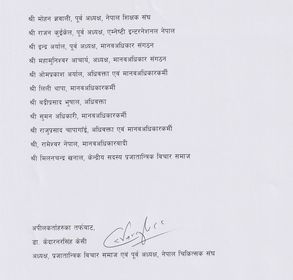 श्री मोहन ज्ञवाली, पूर्व अध्यक्ष, नेपाल शिक्षक संघ
श्री राजन कुईकेल, पूर्व अध्यक्ष, एम्नेष्टी इन्टरनेशनल नेपाल
श्री इन्द्र अर्याल, पूर्व अध्यक्ष, मानवअधिकार संगठन
श्री महामुनिश्वर आचार्य, अध्यक्ष, मानवअधिकार संगठन
श्री ओमप्रकाश अर्याल, अधिवक्ता एवं मानवअधिकारकर्मी
श्री लिली थापा, मानवअधिकारकर्मी
श्री बद्रीप्रसाद भुषाल, अधिवक्ता
श्री सुमन अधिकारी, मानवअधिकारकर्मी
श्री राजुप्रसाद चापागाई, अधिवक्ता एवं मानवअधिकारकर्मी
श्री, रामेश्वर नेपाल, मानवअधिकारवादी
श्री मिलनचन्द्र खनाल, केन्द्रीय सदस्य प्रजातान्त्रिक विचार समाज
अपीलकर्ताहरुका तर्फबाट,
डा. केदारनरसिंह केसी
अध्यक्ष, प्रजातान्त्रिक विचार समाज एवं पूर्व अध्यक्ष, नेपाल चिकित्सक संघ